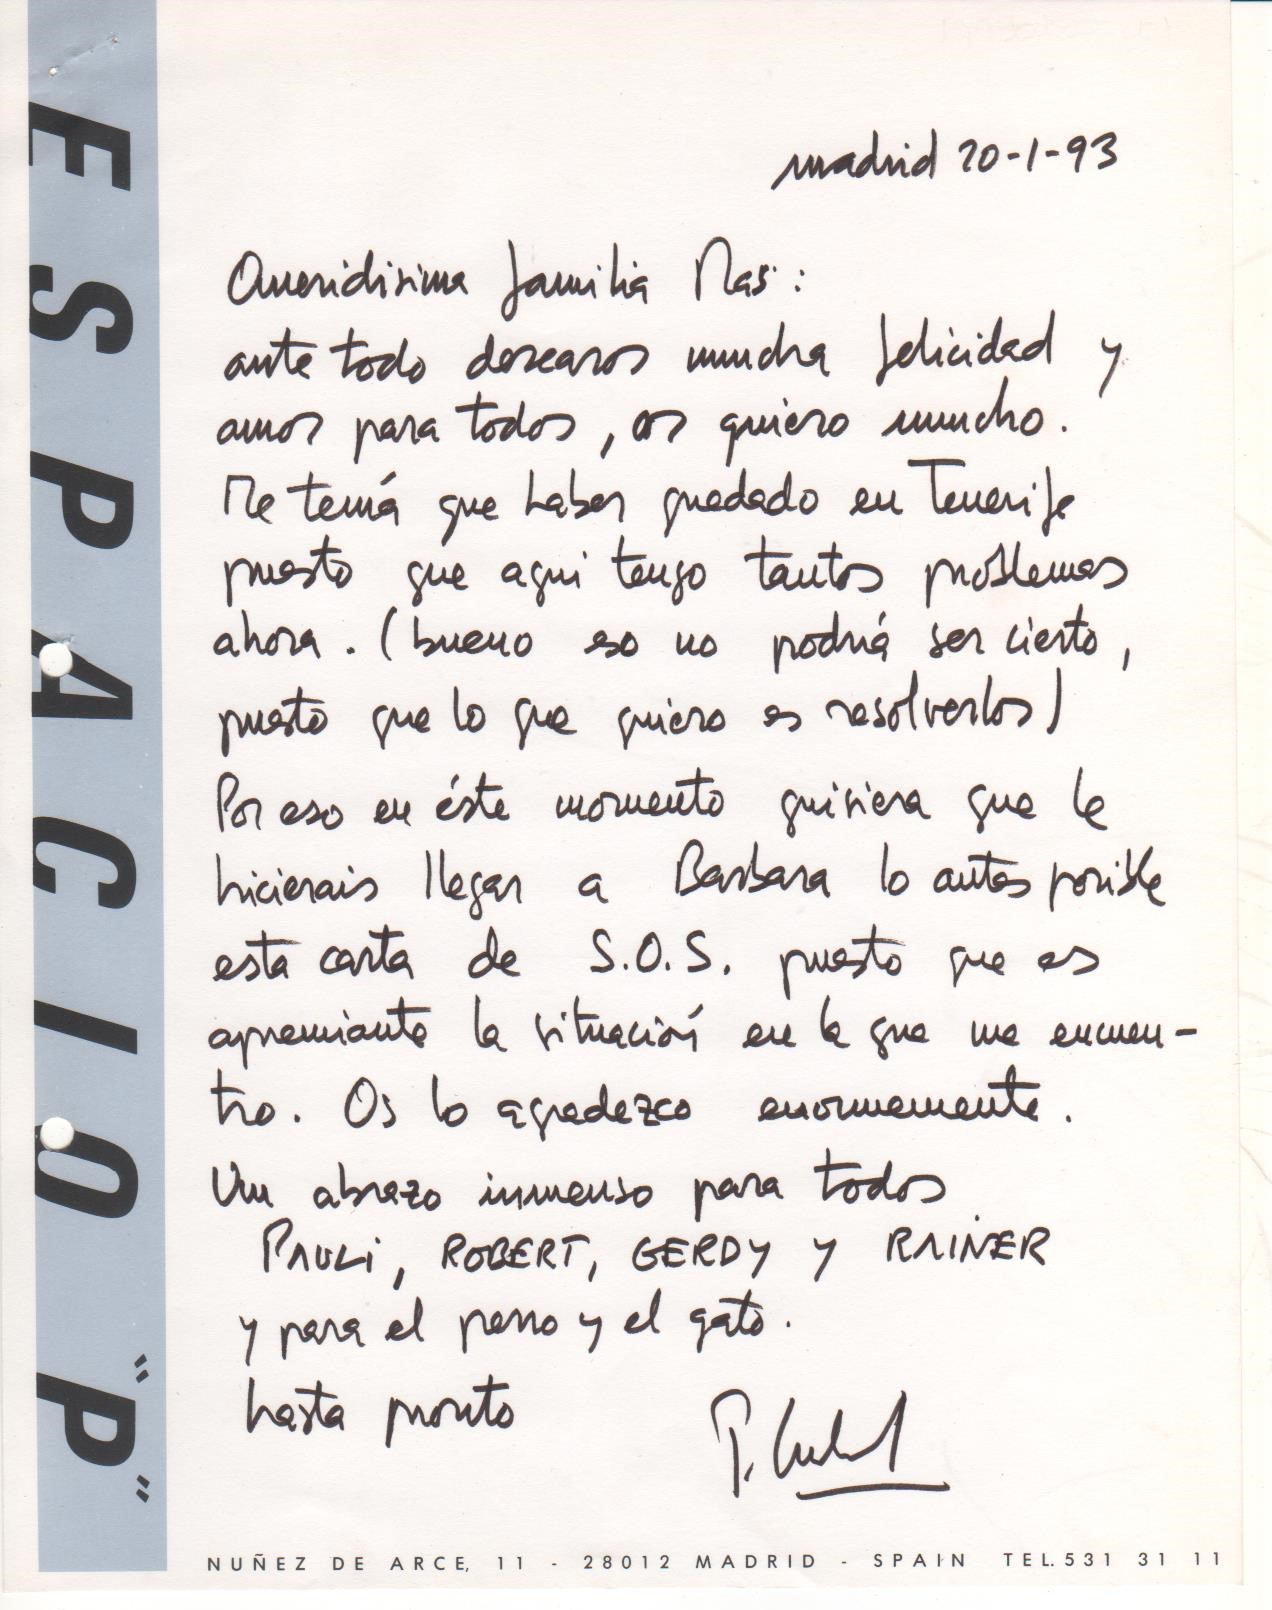 ESPACIO "P"
madrid 20-1-93
Queridisima familia Mas:
ante todo desearos mucha felicidad y
amor para todos, os quiero mucho.
Me tenía que haber quedado en Tenerife
puesto que aqui tengo tantos problemas
ahora. (bueno eso no podría ser cierto,
puesto que lo que quiero es resolverlos)
Por eso en éste momento quisiera que le
hicierais llegar a Barbara lo antes posible
esta carta de S.O.S. puesto que es
apremiante la situación en la que me encuen-
tro. Os lo agradezco enormemente.
Un abrazo inmenso para todos
PAULI, ROBERT, GERDY y RAINER
y para el perro y el gato.
hasta pronto
NUÑEZ DE ARCE, 11 - 28012 MADRID - SPAIN TEL. 531 31 11